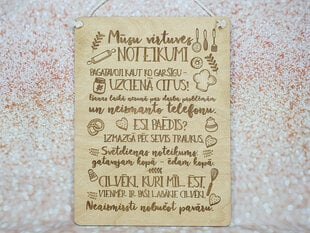 Mūsu virtuves
NOTEIKUMI
PAGATAVOJI KAUT KO GARŠĪGU -
UZCIENĀ CITUS!
Vienas laikā nerunā par darba problēmām
un neizmanto telefonu.
ESI PAĒDIS?
IZMAZGĀ PĒC SEVIS TRAUKUS.
Svētdienas noteikums
gatavojam kopā - ēdam kopā.
CILVĒKI, KURI MĪL ĒST,
VIENMĒR IR PAŠI LABĀKIE CILVĒKI.
Neaizmirsti nobučot pavāru.